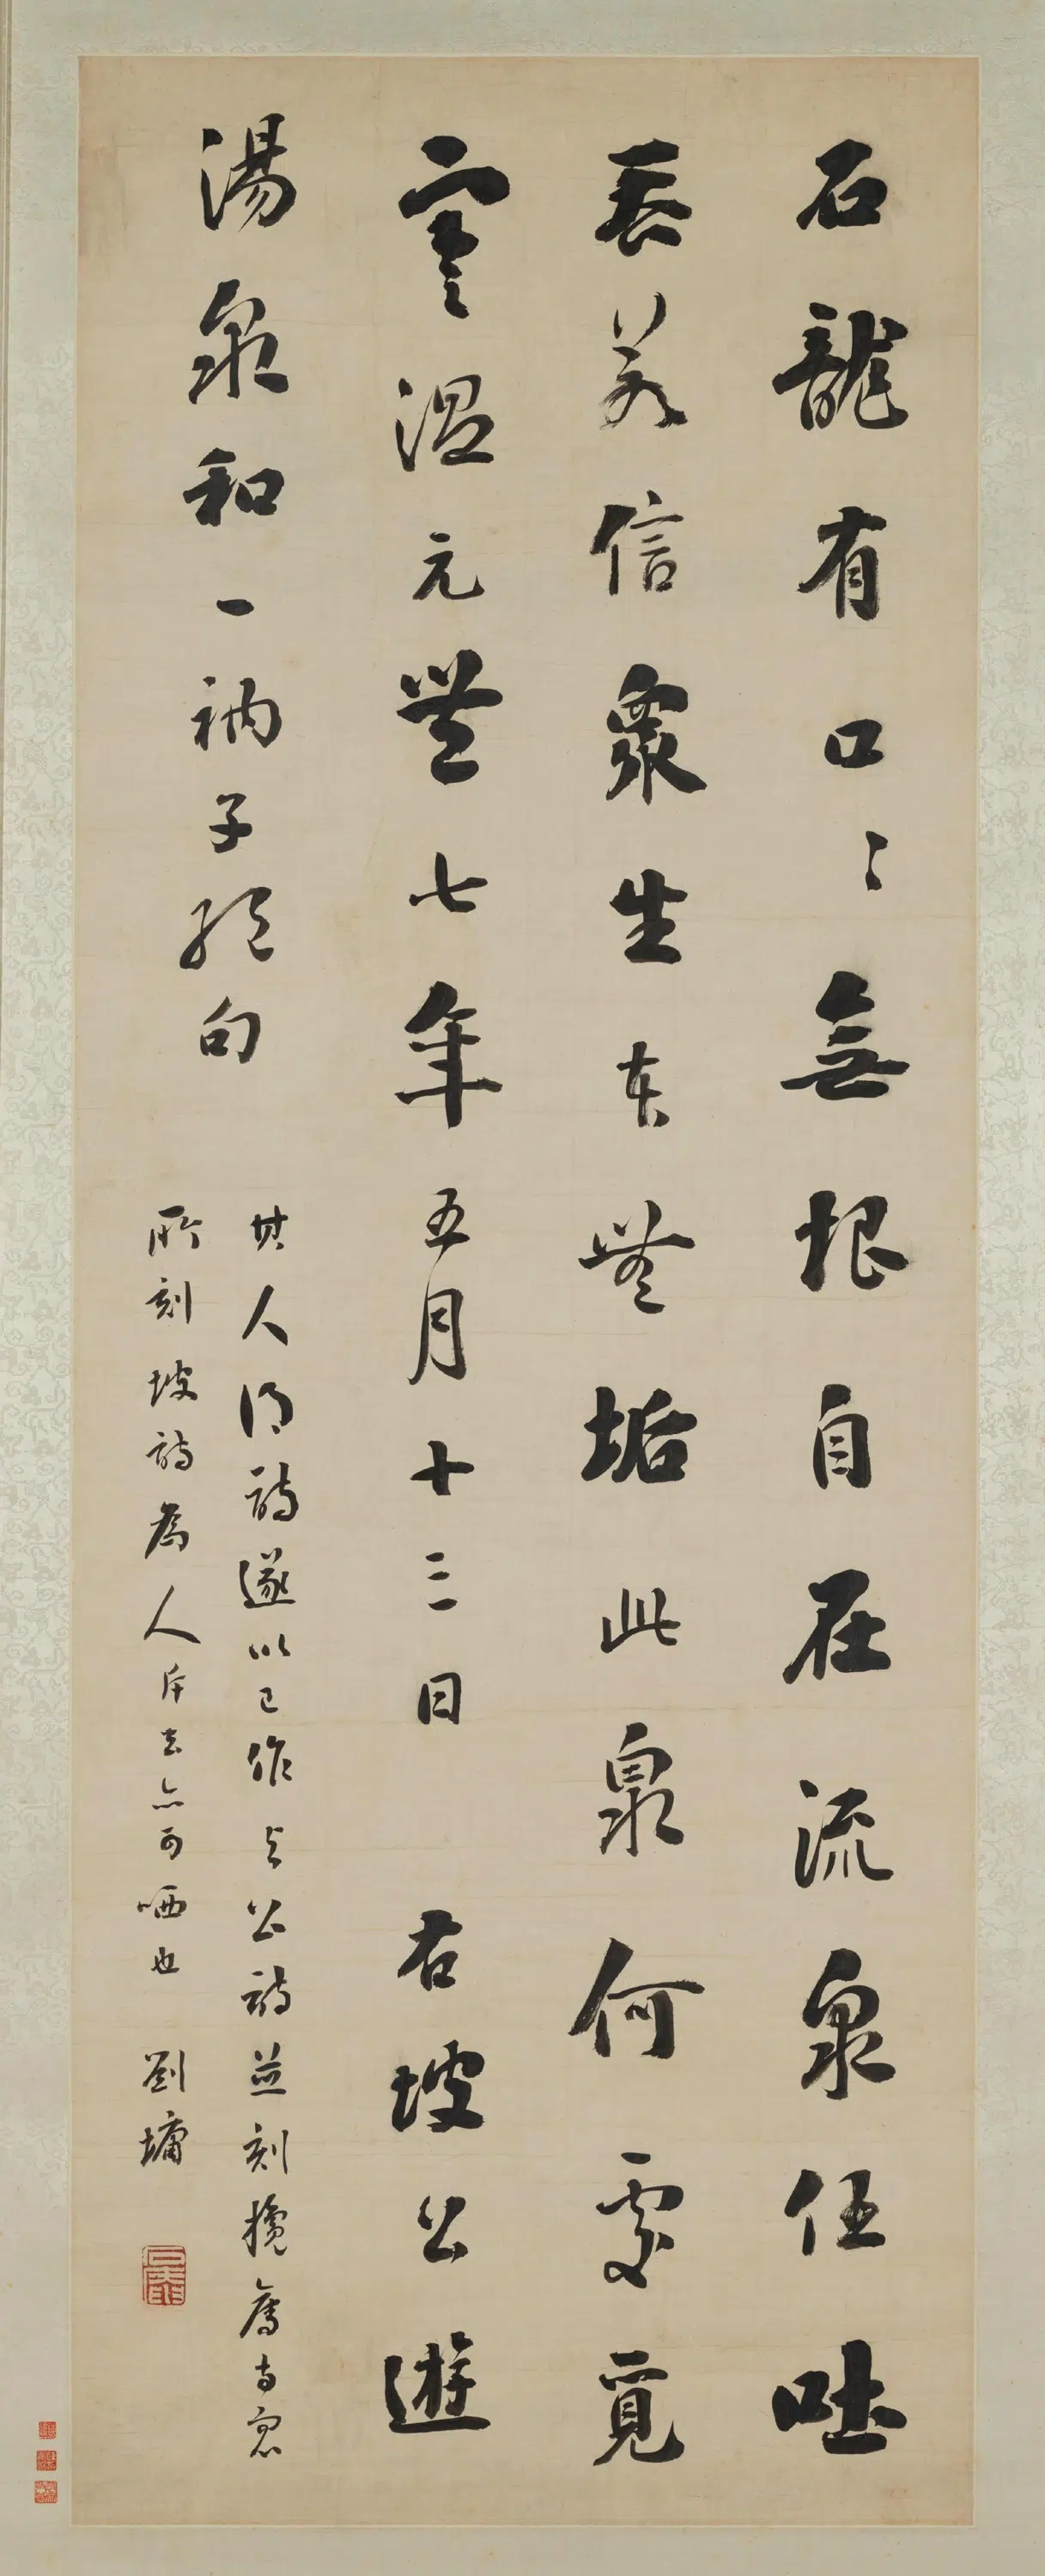 石龍有口〻無根自在流泉任吐
吞若信眾生本無垢此泉何處覓
寒溫元豐七年五月十三日 右坡公遊
湯泉和一衲子絕句
其人得詩遂以己作与公詩並刻
所刻坡詩為人斥去亦可哂也 劉墉
石庵